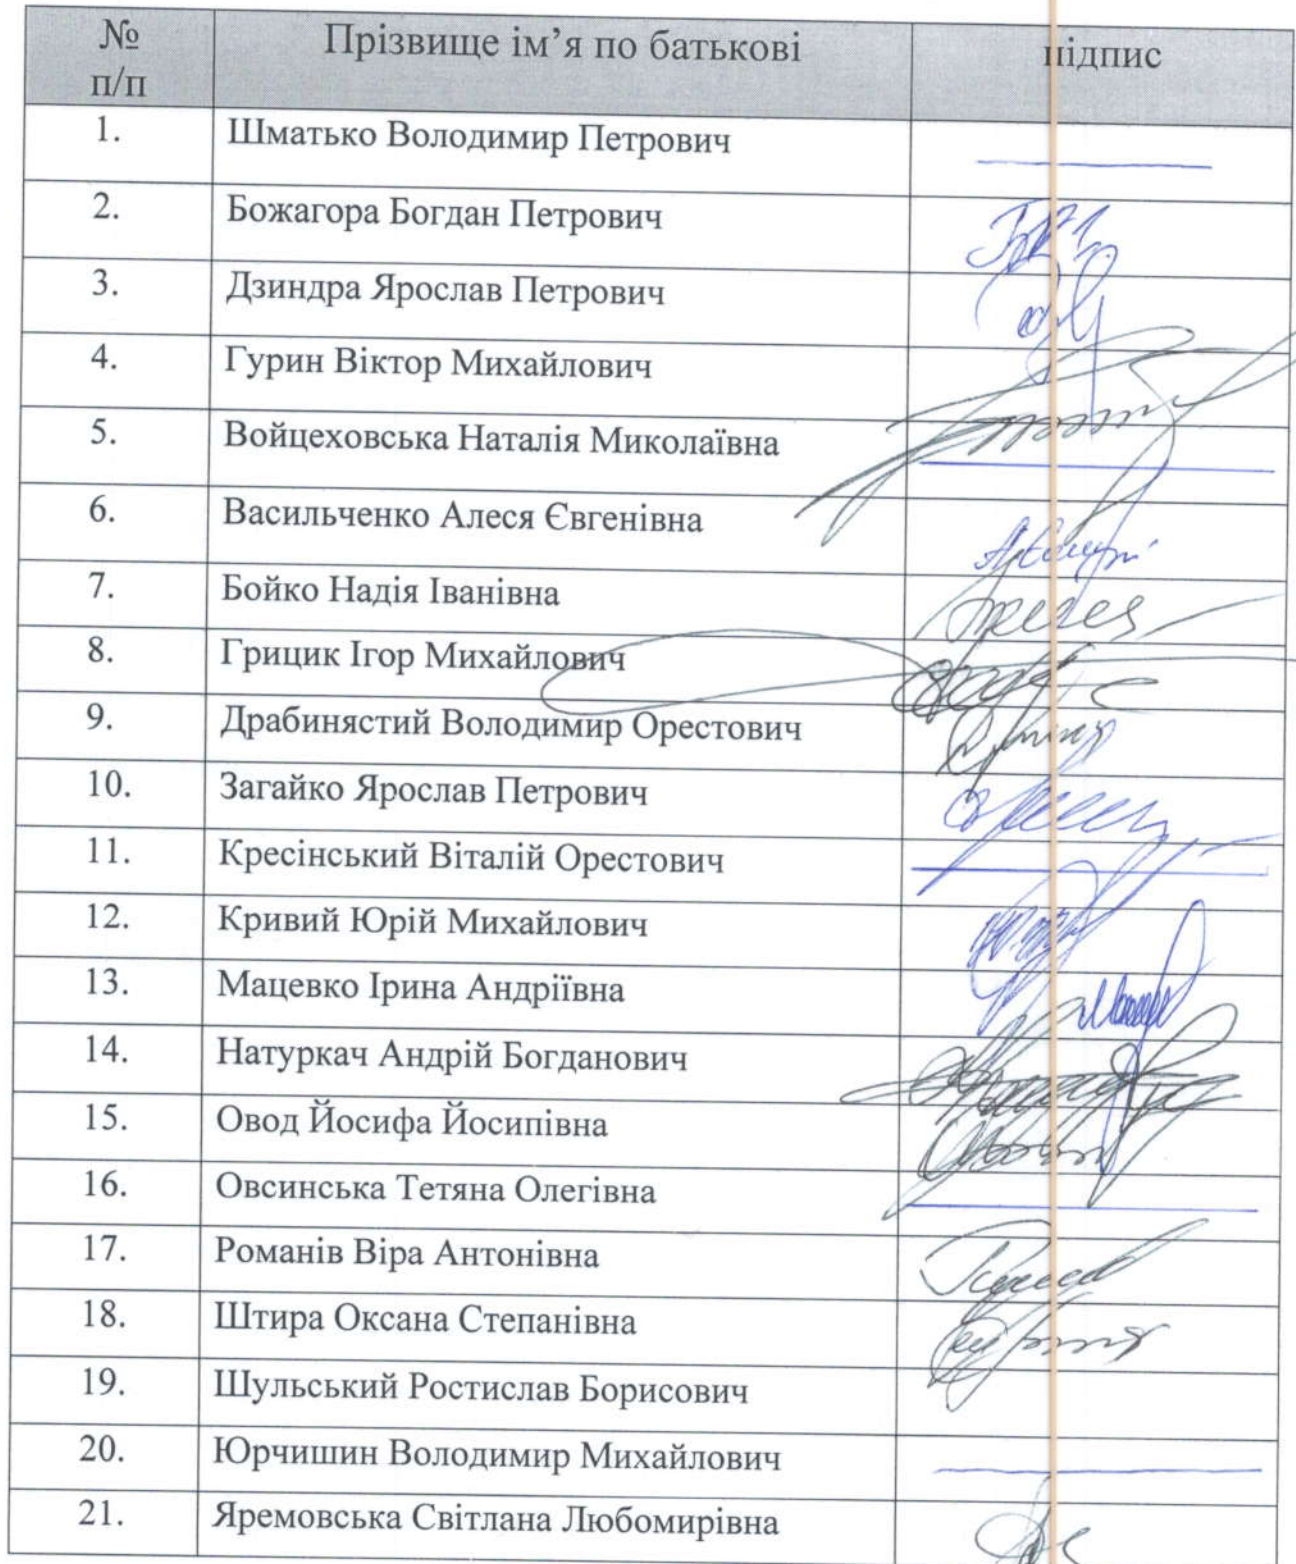 № Прізвище ім’я по батькові підпис
п/п
1. Шматько Володимир Петрович
2. Божагора Богдан Петрович
3. Дзиндра Ярослав Петрович
4. Гурин Віктор Михайлович
5. Войцеховська Наталія Миколаївна
6. Васильченко Алеся Євгенівна
7. Бойко Надія Іванівна
8. Грицик Ігор Михайлович
9. Драбинястий Володимир Орестович
10. Загайко Ярослав Петрович
11. Кресінський Віталій Орестович
12. Кривий Юрій Михайлович
13. Мацевко Ірина Андріївна
14. Натуркач Андрій Богданович
15. Овод Йосифа Йосипівна
16. Овсинська Тетяна Олегівна
17. Романів Віра Антонівна
18. Штира Оксана Степанівна
19. Шульський Ростислав Борисович
20. Юрчишин Володимир Михайлович
21. Яремовська Світлана Любомирівна